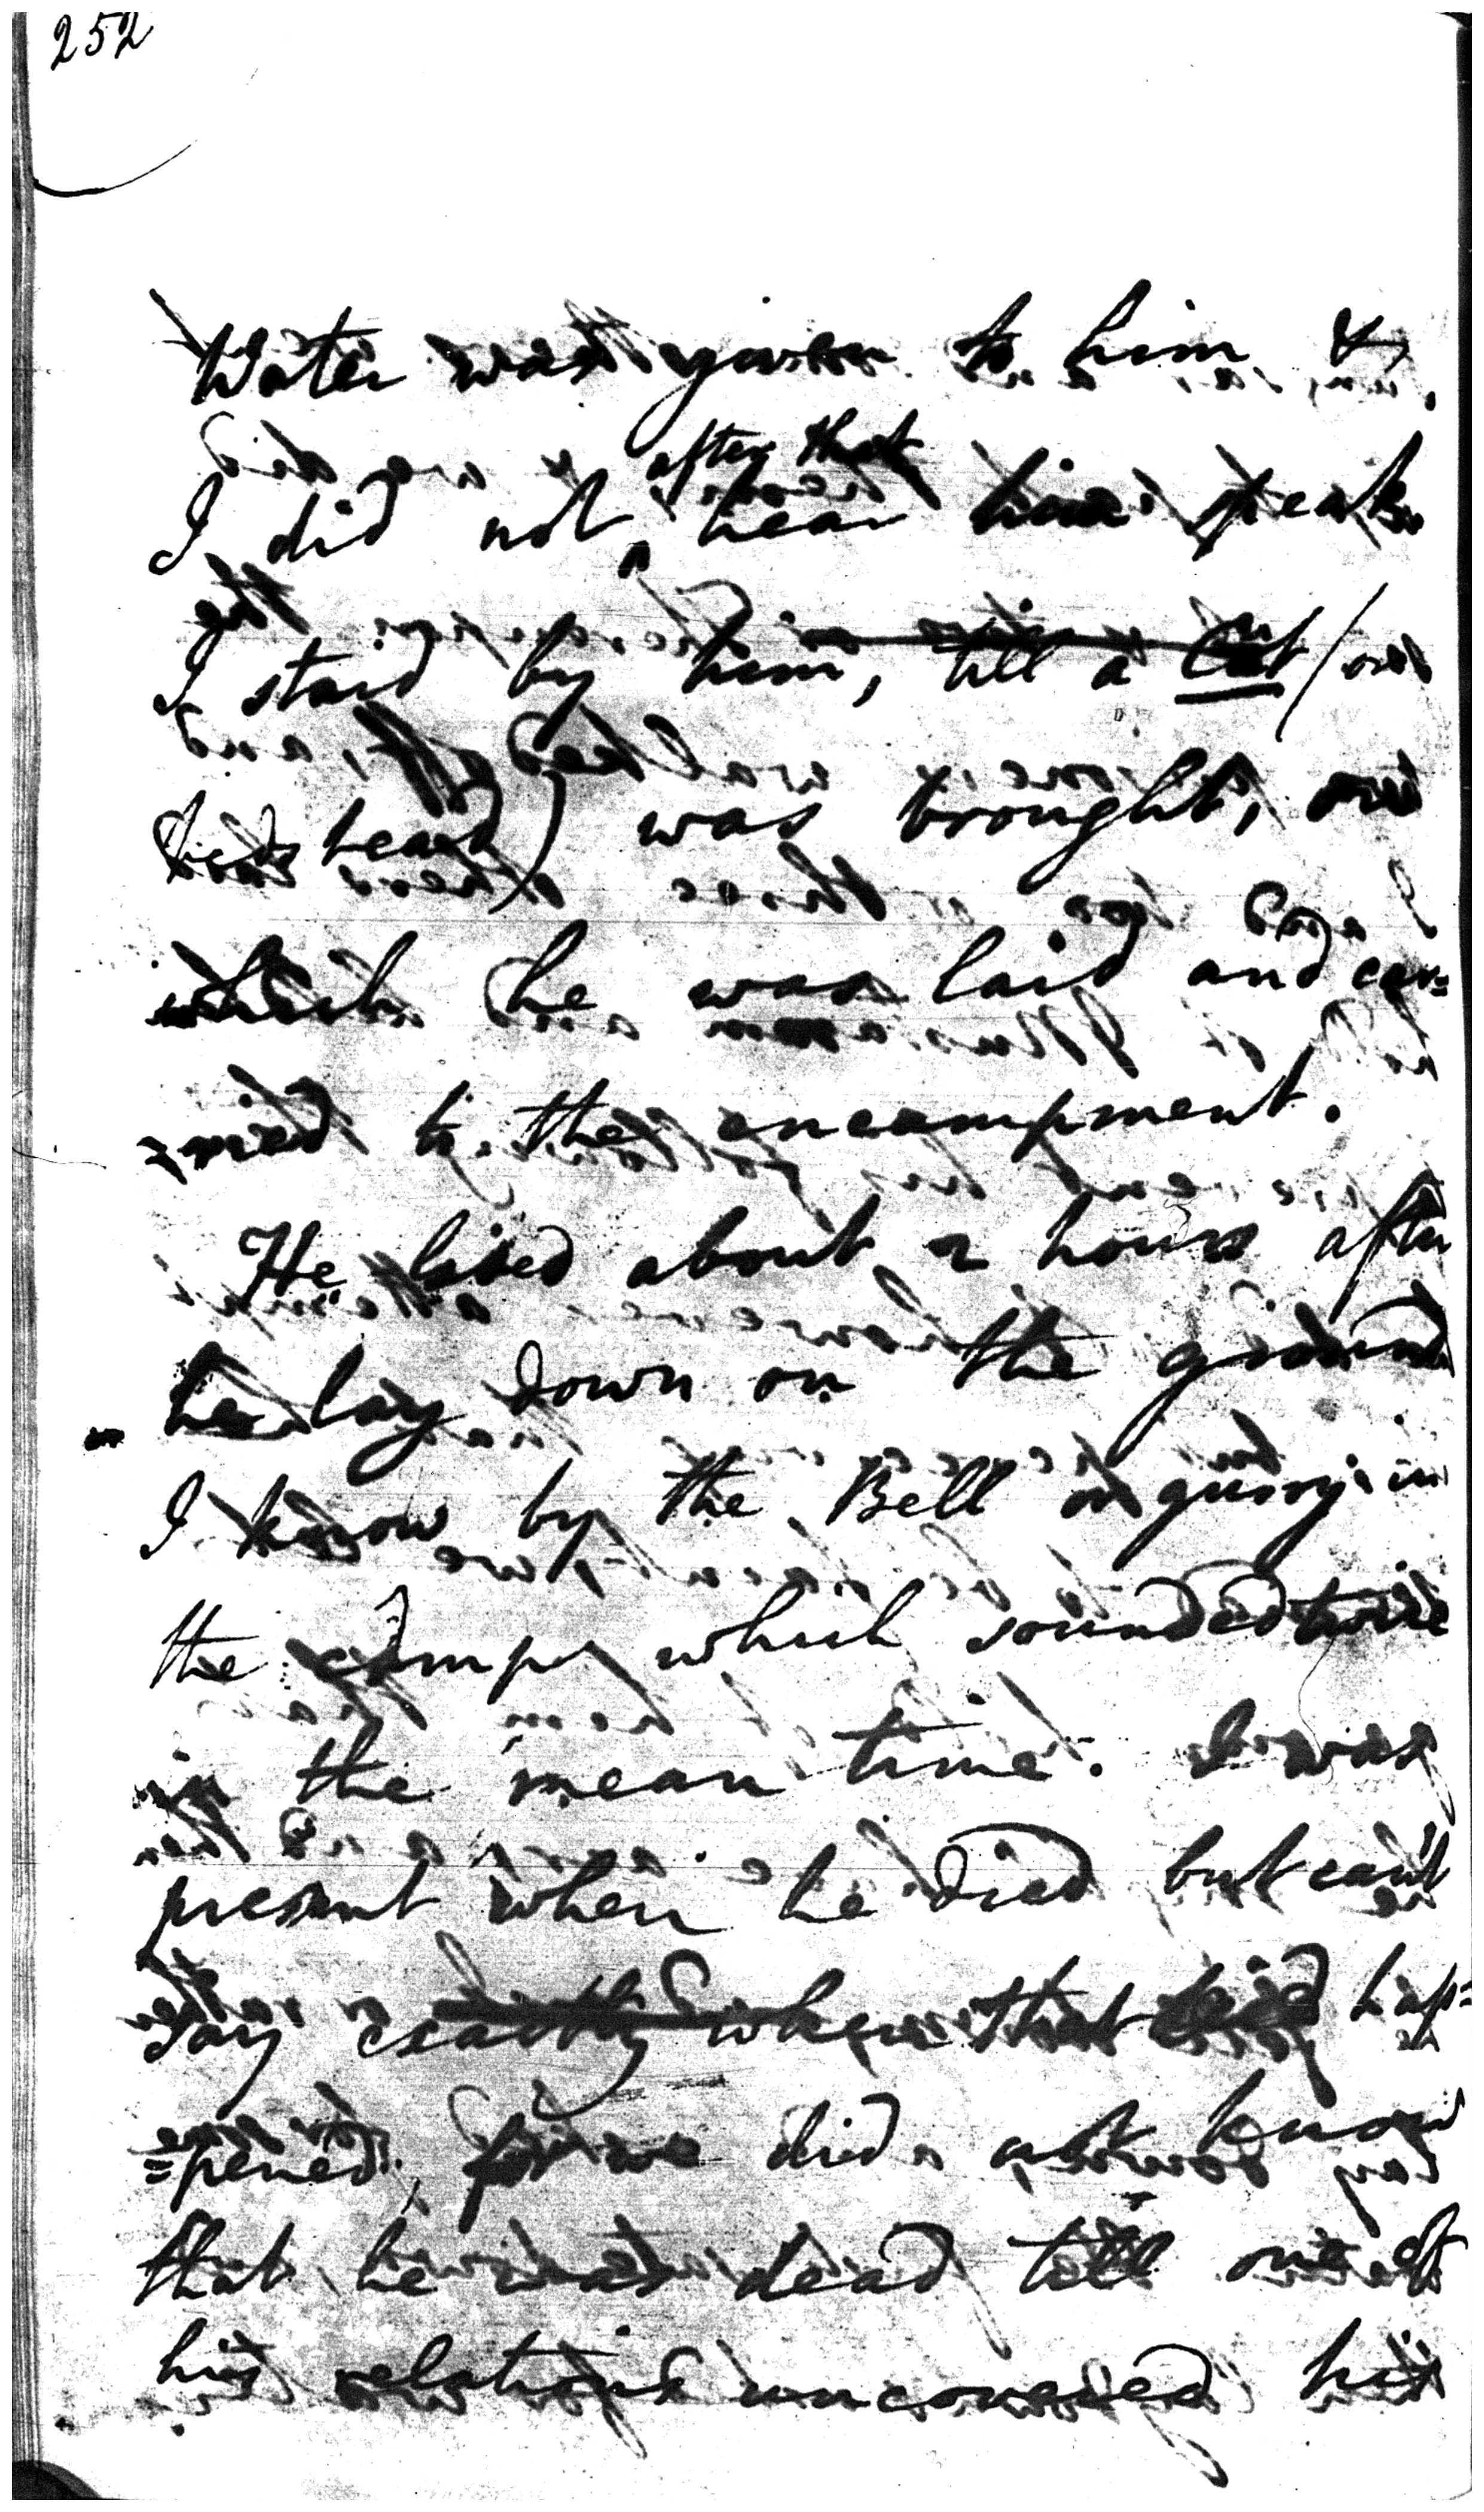 252
Water was given to him &
after that
I did not hear him speak
I staid by him, till a Cut (or
head) was brought, on
which he was laid and car=
=ried to the encampment.
He lived about 2 hours after
he lay down on the ground
I know by the Bell or gurry in
the camp which sounded twice
in the mean time. I was
present when he died but can't
say exactly when that hap=
=pened, for we did not know
that he was dead till one of
his relations uncovered his